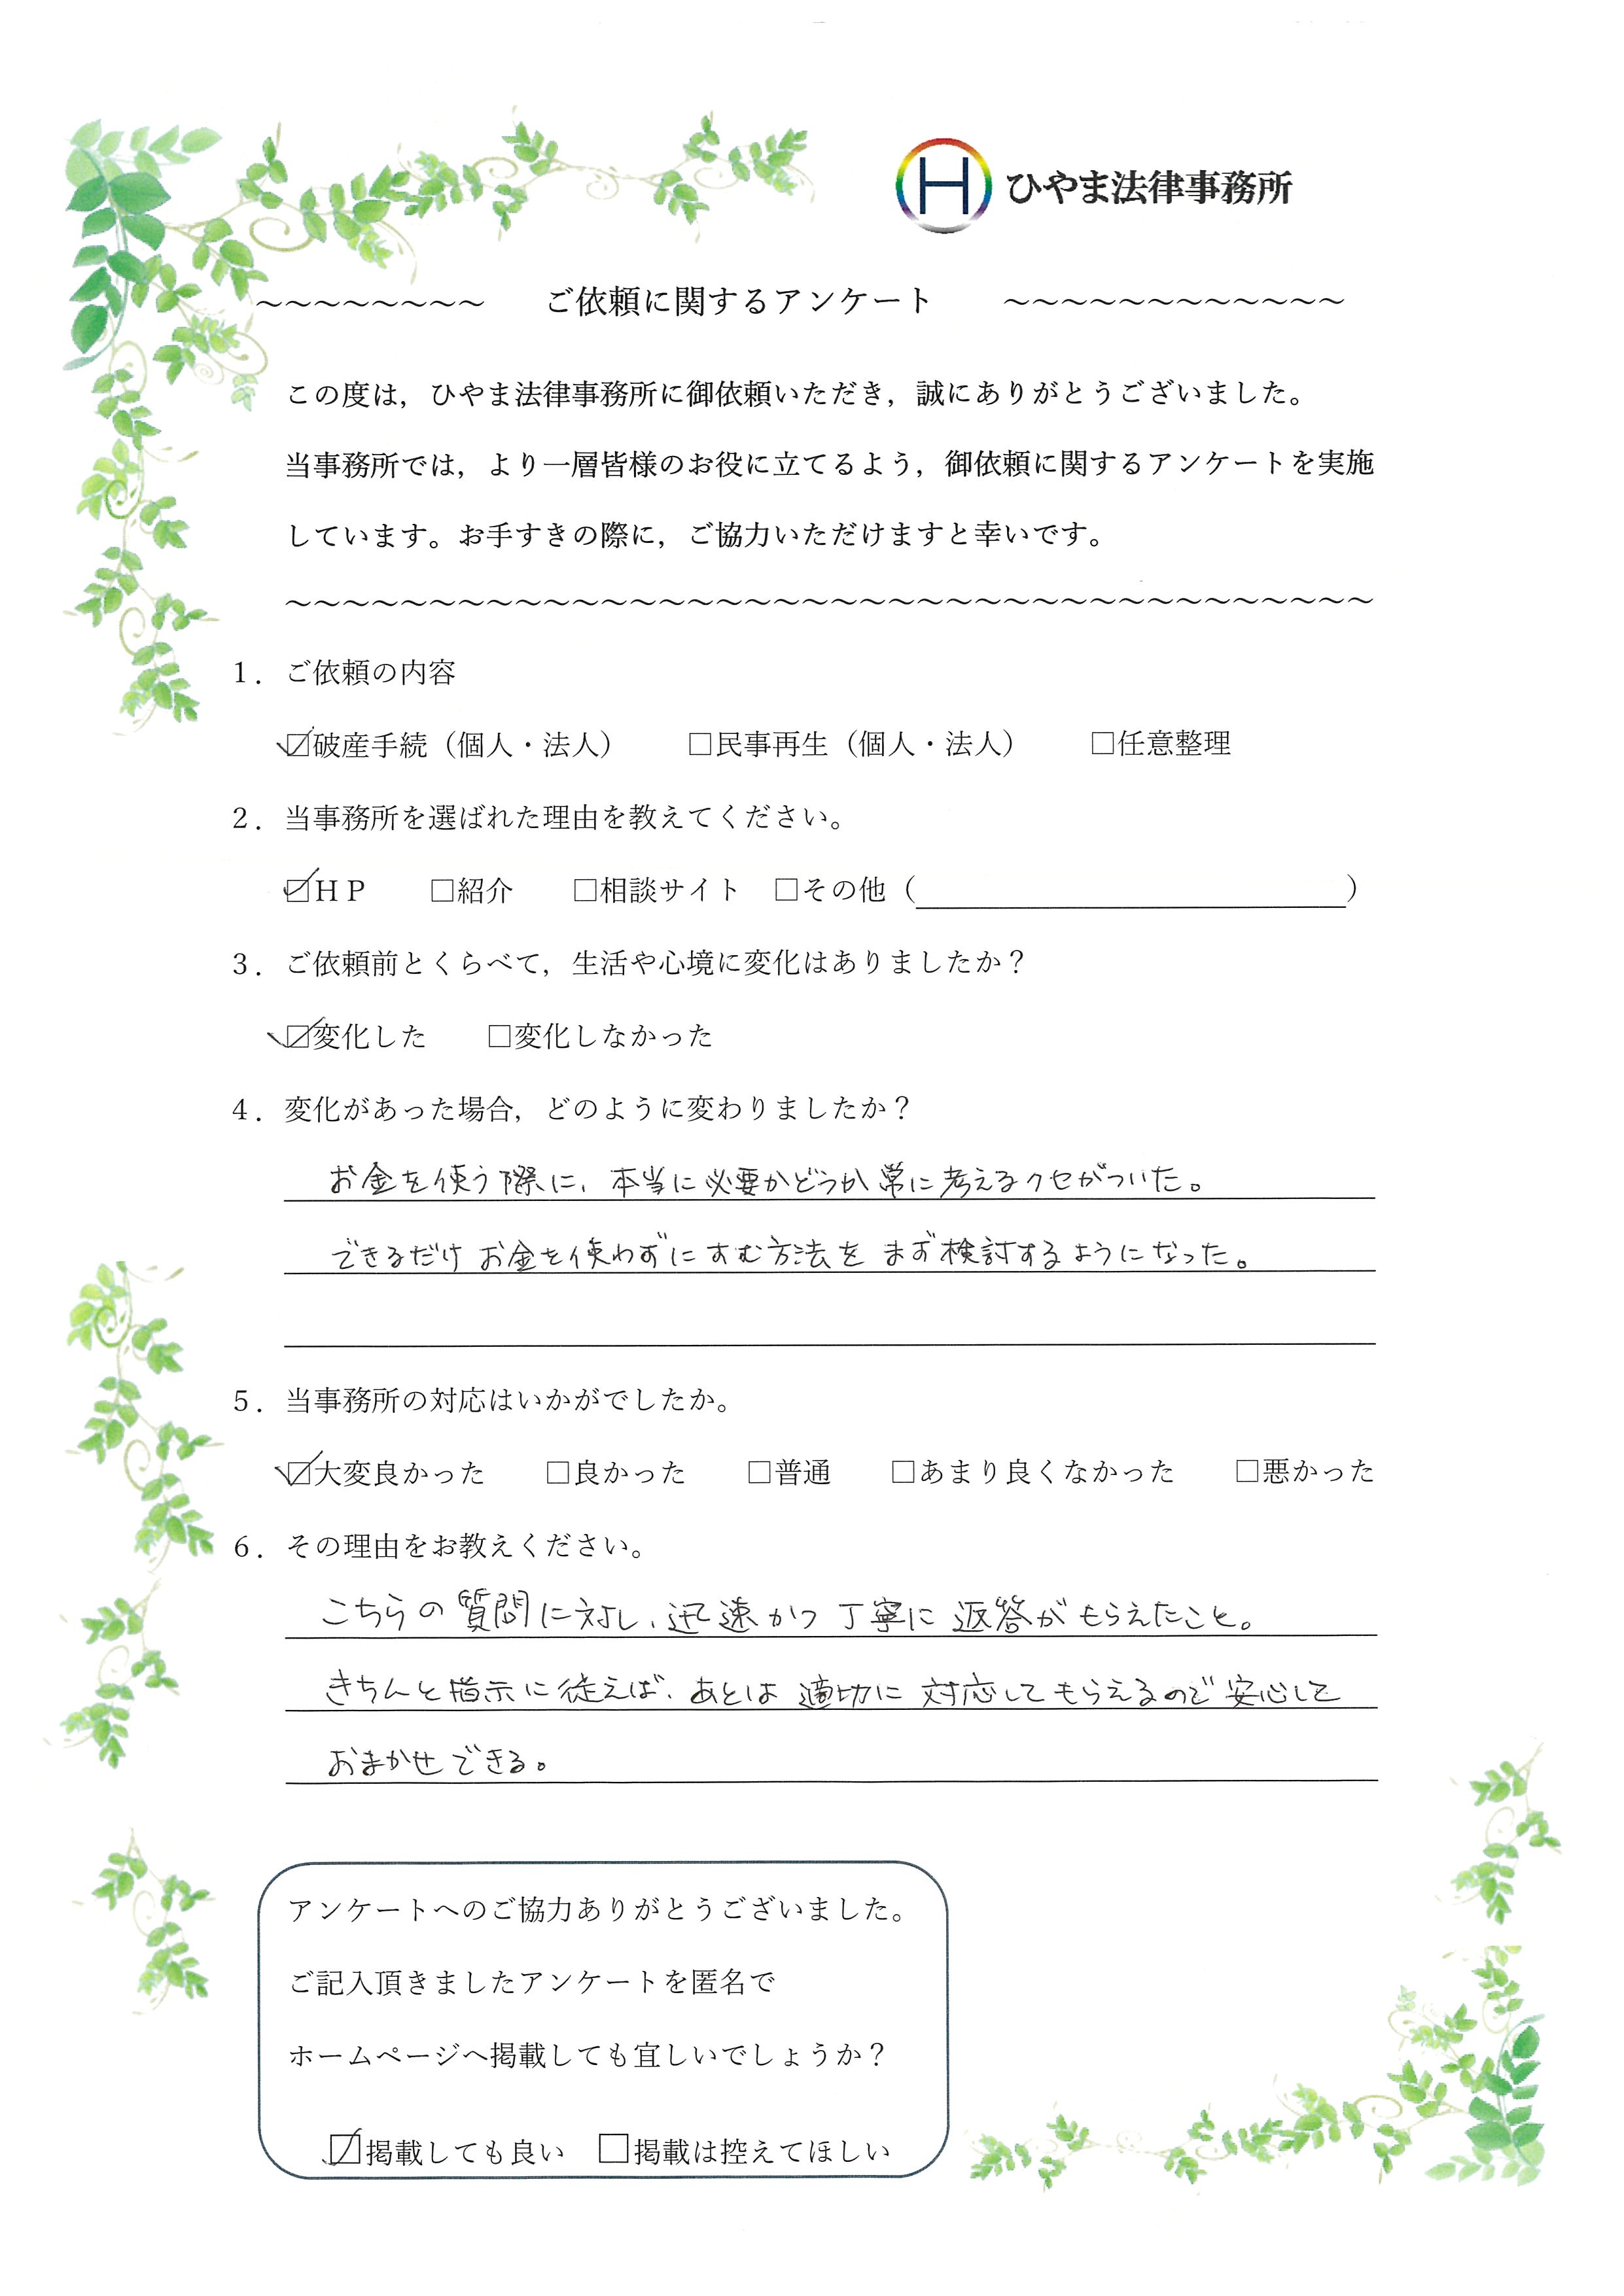 H ひやま法律事務所
～～～～～～～～ ご依頼に関するアンケート ～～～～～～～～～～～～
この度は，ひやま法律事務所に御依頼いただき，誠にありがとうございました。
当事務所では，より一層皆様のお役に立てるよう，御依頼に関するアンケートを実施
しています。お手すきの際に，ご協力いただけますと幸いです。
～～～～～～～～～～～～～～～～～～～～～～～～～～～～～～～～～～～～～～
１．ご依頼の内容
☑破産手続（個人・法人） □民事再生（個人・法人） □任意整理
２．当事務所を選ばれた理由を教えてください。
☑ＨＰ □紹介 □相談サイト □その他（ ）
３．ご依頼前とくらべて，生活や心境に変化はありましたか？
☑変化した □変化しなかった
４．変化があった場合，どのように変わりましたか？
お金を使う際に、本当に必要かどうか常に考えるクセがついた。
できるだけお金を使わずにすむ方法をまず検討するようになった。
５．当事務所の対応はいかがでしたか。
☑大変良かった □良かった □普通 □あまり良くなかった □悪かった
６．その理由をお教えください。
こちらの質問に対し、迅速かつ丁寧に返答がもらえたこと。
きちんと指示に従えば、あとは適切に対応してもらえるので安心して
おまかせできる。
アンケートへのご協力ありがとうございました。
ご記入頂きましたアンケートを匿名で
ホームページへ掲載しても宜しいでしょうか？
☑掲載しても良い □掲載は控えてほしい